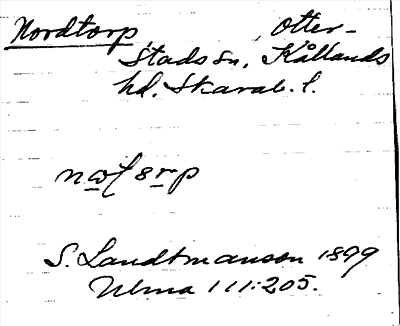 Nordtorp, Otter-
stads sn, Kållands
hd. Skarab. l.
S. Landtmanson 1899
Ulma 111:205.